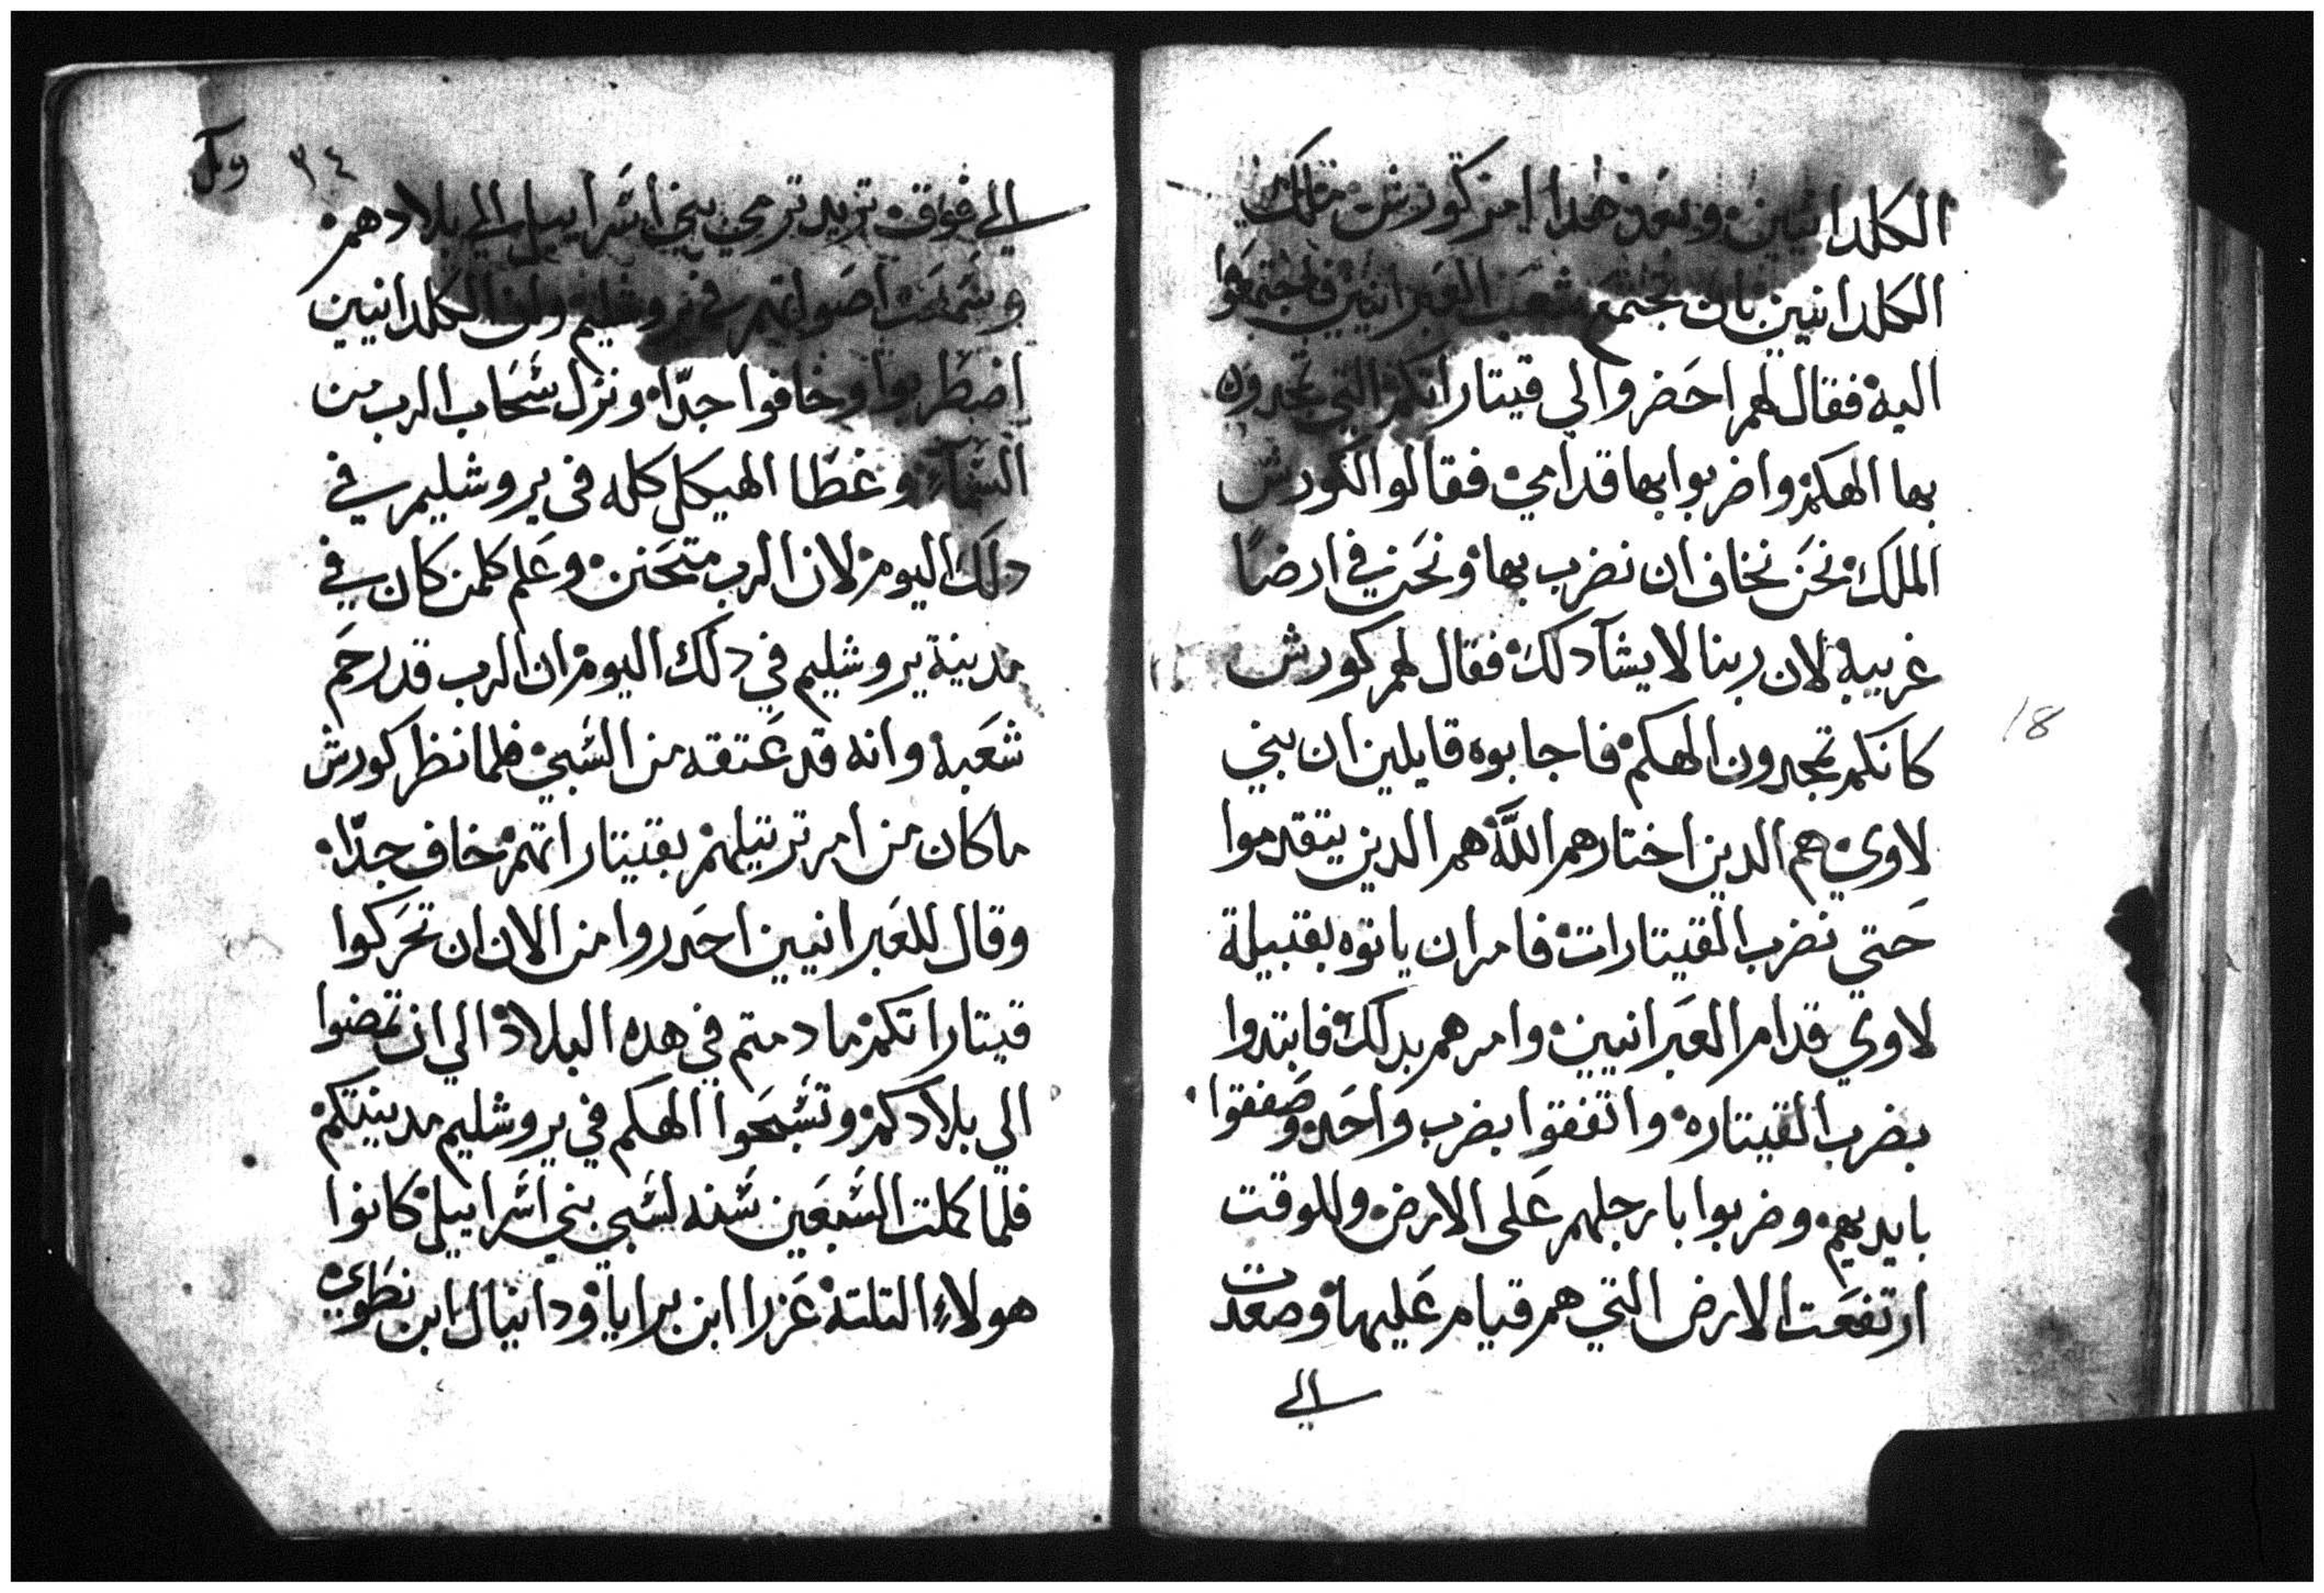 الكلدانيين وبعد هدا امر كورش ملك
الكلدانيين بان تجتمع شعب العبرانيين فاجتمعوا
اليه فقال لهم احضروا لي قيتاراتكم التي تمجدون
بها الهكم واضربوا بها قدامي فقالوا لكورش
الملك نحن نخاف ان نضرب بها ونحن في ارضا
غريبه لان ربنا لا يشآ دلك فقال لهم كورش
كانكم تمجدون الهكم فاجابوه قايلين ان بني
لاوي هم الدين اختارهم اللّه هم الدين يتقدموا
حتي نضرب القيتارات فامر ان ياتوه بقبيلة
لاوي قدام العبرانيين وامرهم بدلك فابتدوا
بضرب القيتاره واتفقوا بضرب واحد وصفقوا
بايديهم وضربوا بارجلهم على الارض وللوقت
ارتفعت الارض التي هم قيام عليها وصعدت
الي
18
٣٤
الي فوق تريد ترمي بني اسراييل الي بلادهم
وسمعت اصواتهم في يروشليم وان الكلدانيين
اضطربوا وخافوا جدّا ونزل سحاب الرب من
السمآء وغطا الهيكل كله في يروشليم في
دلك اليوم لان الرب متحنن وعلم كلمن كان في
مدينة يروشليم في دلك اليوم ان الرب قد رحم
شعبه وانه قد عتقه من السبي فلما نظر كورش
ما كان من امر ترتيلهم بقيتاراتهم خاف جدّا
وقال للعبرانيين احدروا من الان ان تحركوا
قيتاراتكم ما دمتم في هده البلاد الي ان تمضوا
الي بلادكم وتسبحوا الهكم في يروشليم مدينتكم
فلما كملت السبعين سنه لسبي بني اسراييل كانوا
هولاء التلته عزرا ابن برايا ودانيال ابن نطوي